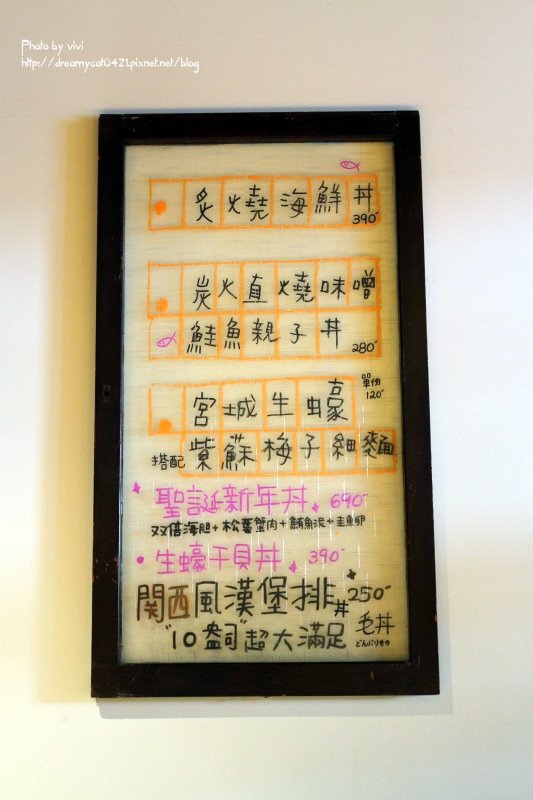 Photo by vivi
http://dreamycat0421.pixnet.net/blog
炙燒海鮮丼
390
炭火直燒味噌
鮭魚親子丼
280
宮城生蠔
單份
120
搭配 紫蘇梅子細麵
聖誕新年丼 690
双倍海胆+松葉蟹肉+鮪魚泥+鮭魚卵
生蠔干貝丼 390
関西風漢堡排丼 250
"10盎司"超大滿足
毛丼
どんぶりもの